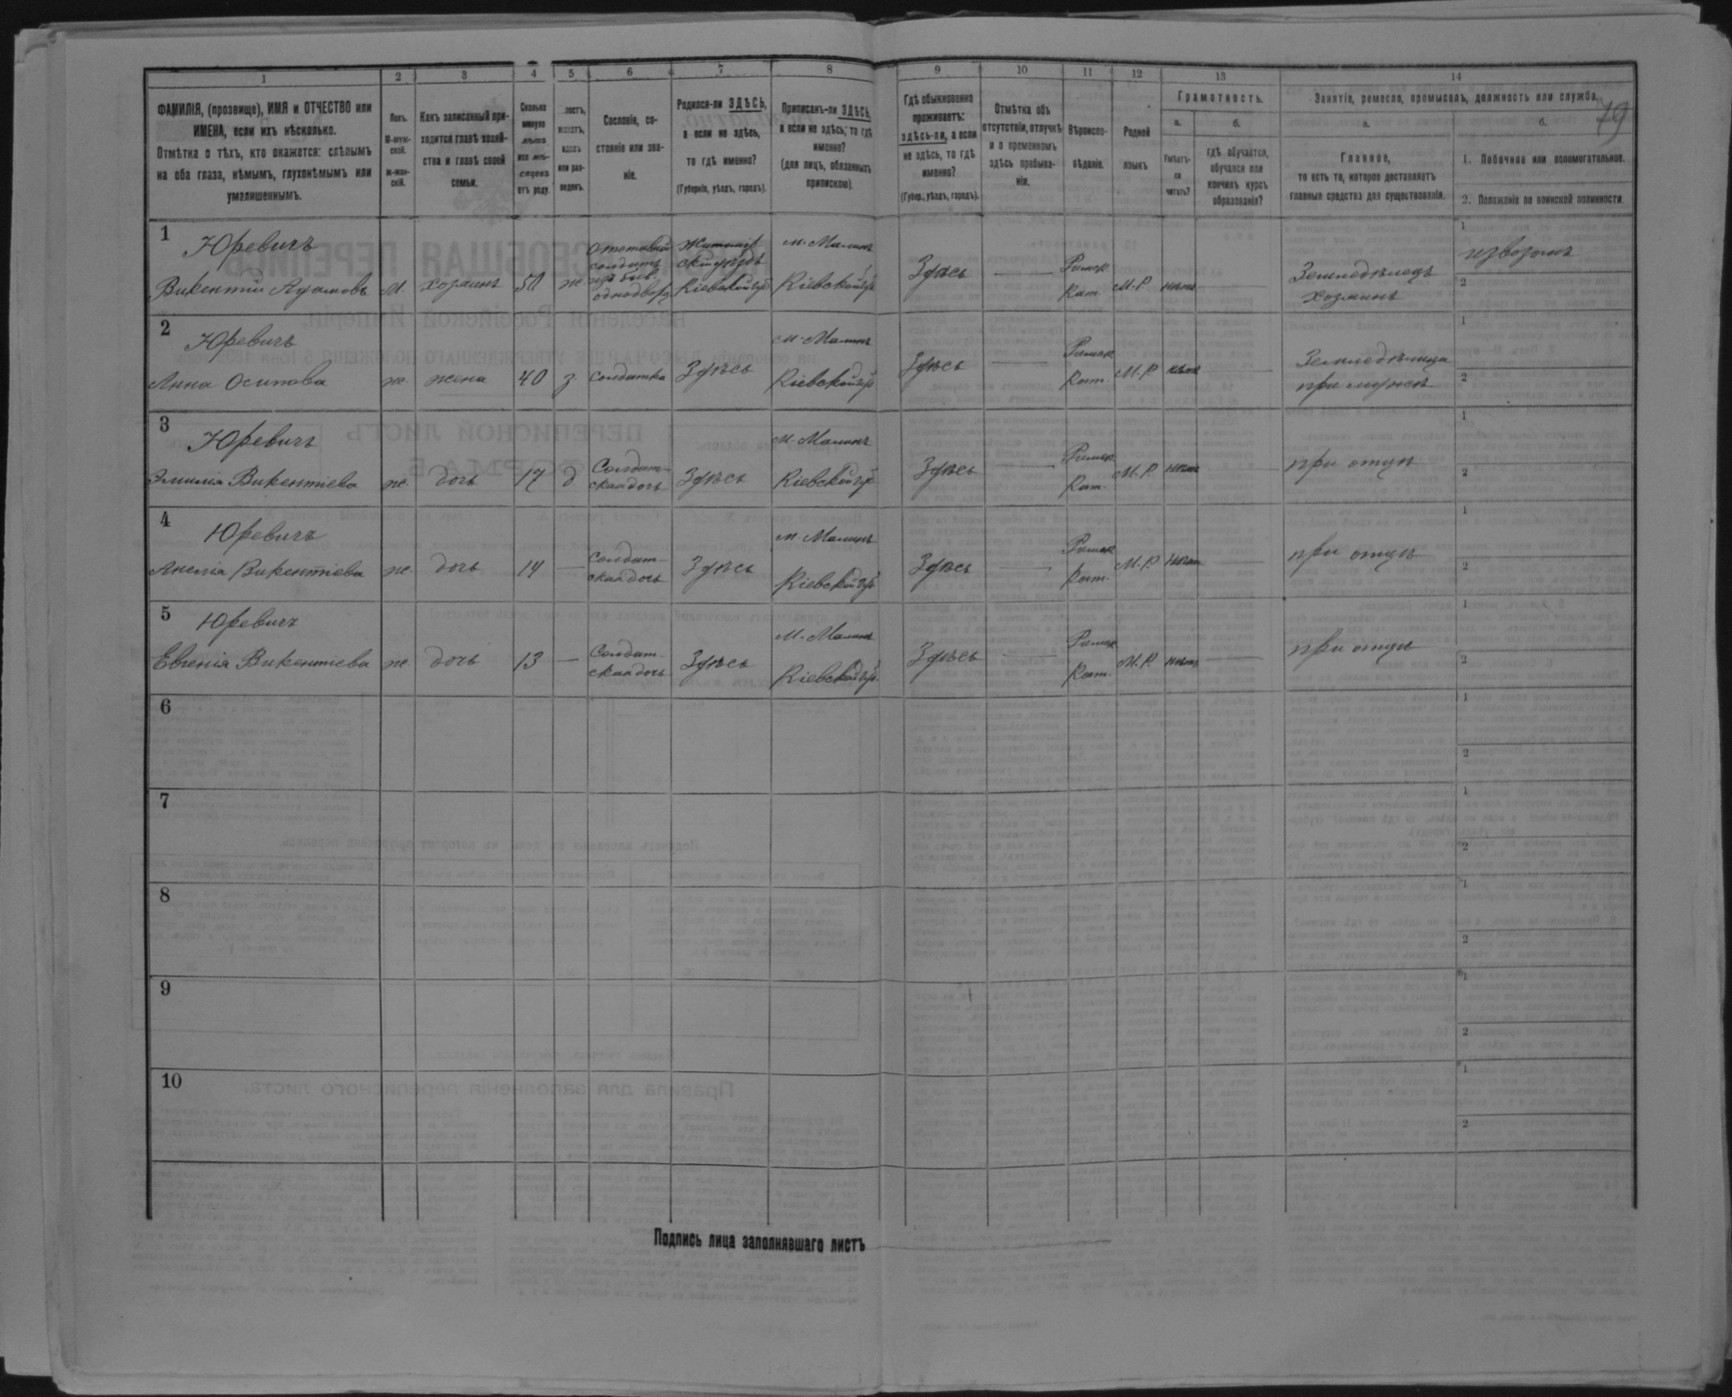 1 2 3 4 5 6 7 8 9 10 11 12 13 14
79
ФАМИЛІЯ, (прозвище), ИМЯ и ОТЧЕСТВО или
ИМЕНА, если ихъ нѣсколько.
Отмѣтка о тѣхъ, кто окажется: слѣпымъ
на оба глаза, нѣмымъ, глухонѣмымъ или
умалишеннымъ.
Полъ.
М-муж-
ской.
ж-жен-
скій.
Какъ записанный при-
ходится главѣ хозяй-
ства и главѣ своей
семьи.
Сколько
минуло
лѣтъ
или мѣ-
сяцевъ
отъ роду.
или раз-
веденъ.
Сословіе, со-
стояніе или зва-
ніе.
Родился-ли ЗДѢСЬ,
а если не здѣсь,
то гдѣ именно?
(Губернія, уѣздъ, городъ).
Приписанъ-ли ЗДѢСЬ,
а если не здѣсь, то гдѣ
именно?
(для лицъ, обязанныхъ
припискою).
Гдѣ обыкновенно
проживаетъ:
здѣсь-ли, а если
не здѣсь, то гдѣ
именно?
(Губер., уѣздъ, городъ).
Отмѣтка объ
отсутствіи, отлучкѣ
и о временномъ
здѣсь пребыва-
ніи.
Вѣроиспо-
вѣданіе.
Родной
языкъ
Грамотность.
а.
Умѣетъ-
ли
читать?
б.
гдѣ обучается,
обучался или
кончилъ курсъ
образованія?
Занятіе, ремесло, промыселъ, должность или служба.
а.
Главное,
то есть то, которое доставляетъ
главныя средства для существованія.
б.
1. Побочное или вспомогательное.
2. Положеніе по воинской повинности.
1
Юревичъ
Викентій Адамовъ М. хозяинъ 50 ж
отставной
солдатъ
изъ быв.
однодвор
Житомір
скій уѣздъ
Кіевской губ
м. Малинъ
Кіевской губ
Здѣсь —
Римск
Кат. М.Р. нѣтъ —
Земледѣлецъ
хозяинъ
1
извозомъ
2
2
Юревичъ
Анна Осипова ж. жена 40 з. солдатка Здѣсь
м. Малинъ
Кіевской губ
Здѣсь —
Римск
Кат. М.Р. нѣтъ —
Земледѣлица
при мужѣ
1
2
3
Юревичъ
Эмилія Викентіева ж. дочь 17 д
Солдат-
ская дочь
Здѣсь
м. Малинъ
Кіевской губ
Здѣсь —
Римск
Кат. М.Р. нѣтъ
при отцѣ
1
2
4
Юревичъ
Анелія Викентіева ж. дочь 14 —
Солдат-
ская дочь
Здѣсь
м. Малинъ
Кіевской губ
Здѣсь —
Римск
Кат. М.Р. Нѣтъ —
при отцѣ
1
2
5
Юревичъ
Евгенія Викентіева ж дочь 13 —
Солдат-
ская дочь
Здѣсь
м. Малинъ
Кіевской губ.
Здѣсь —
Римск
Кат. М.Р. нѣтъ —
при отцѣ
1
2
6
1
2
7
1
2
8
1
2
9
1
2
10
1
2
Подпись лица заполнявшаго листъ